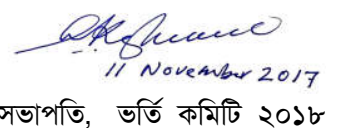 11 November 2017
সভাপতি, ভর্তি কমিটি ২০১৮